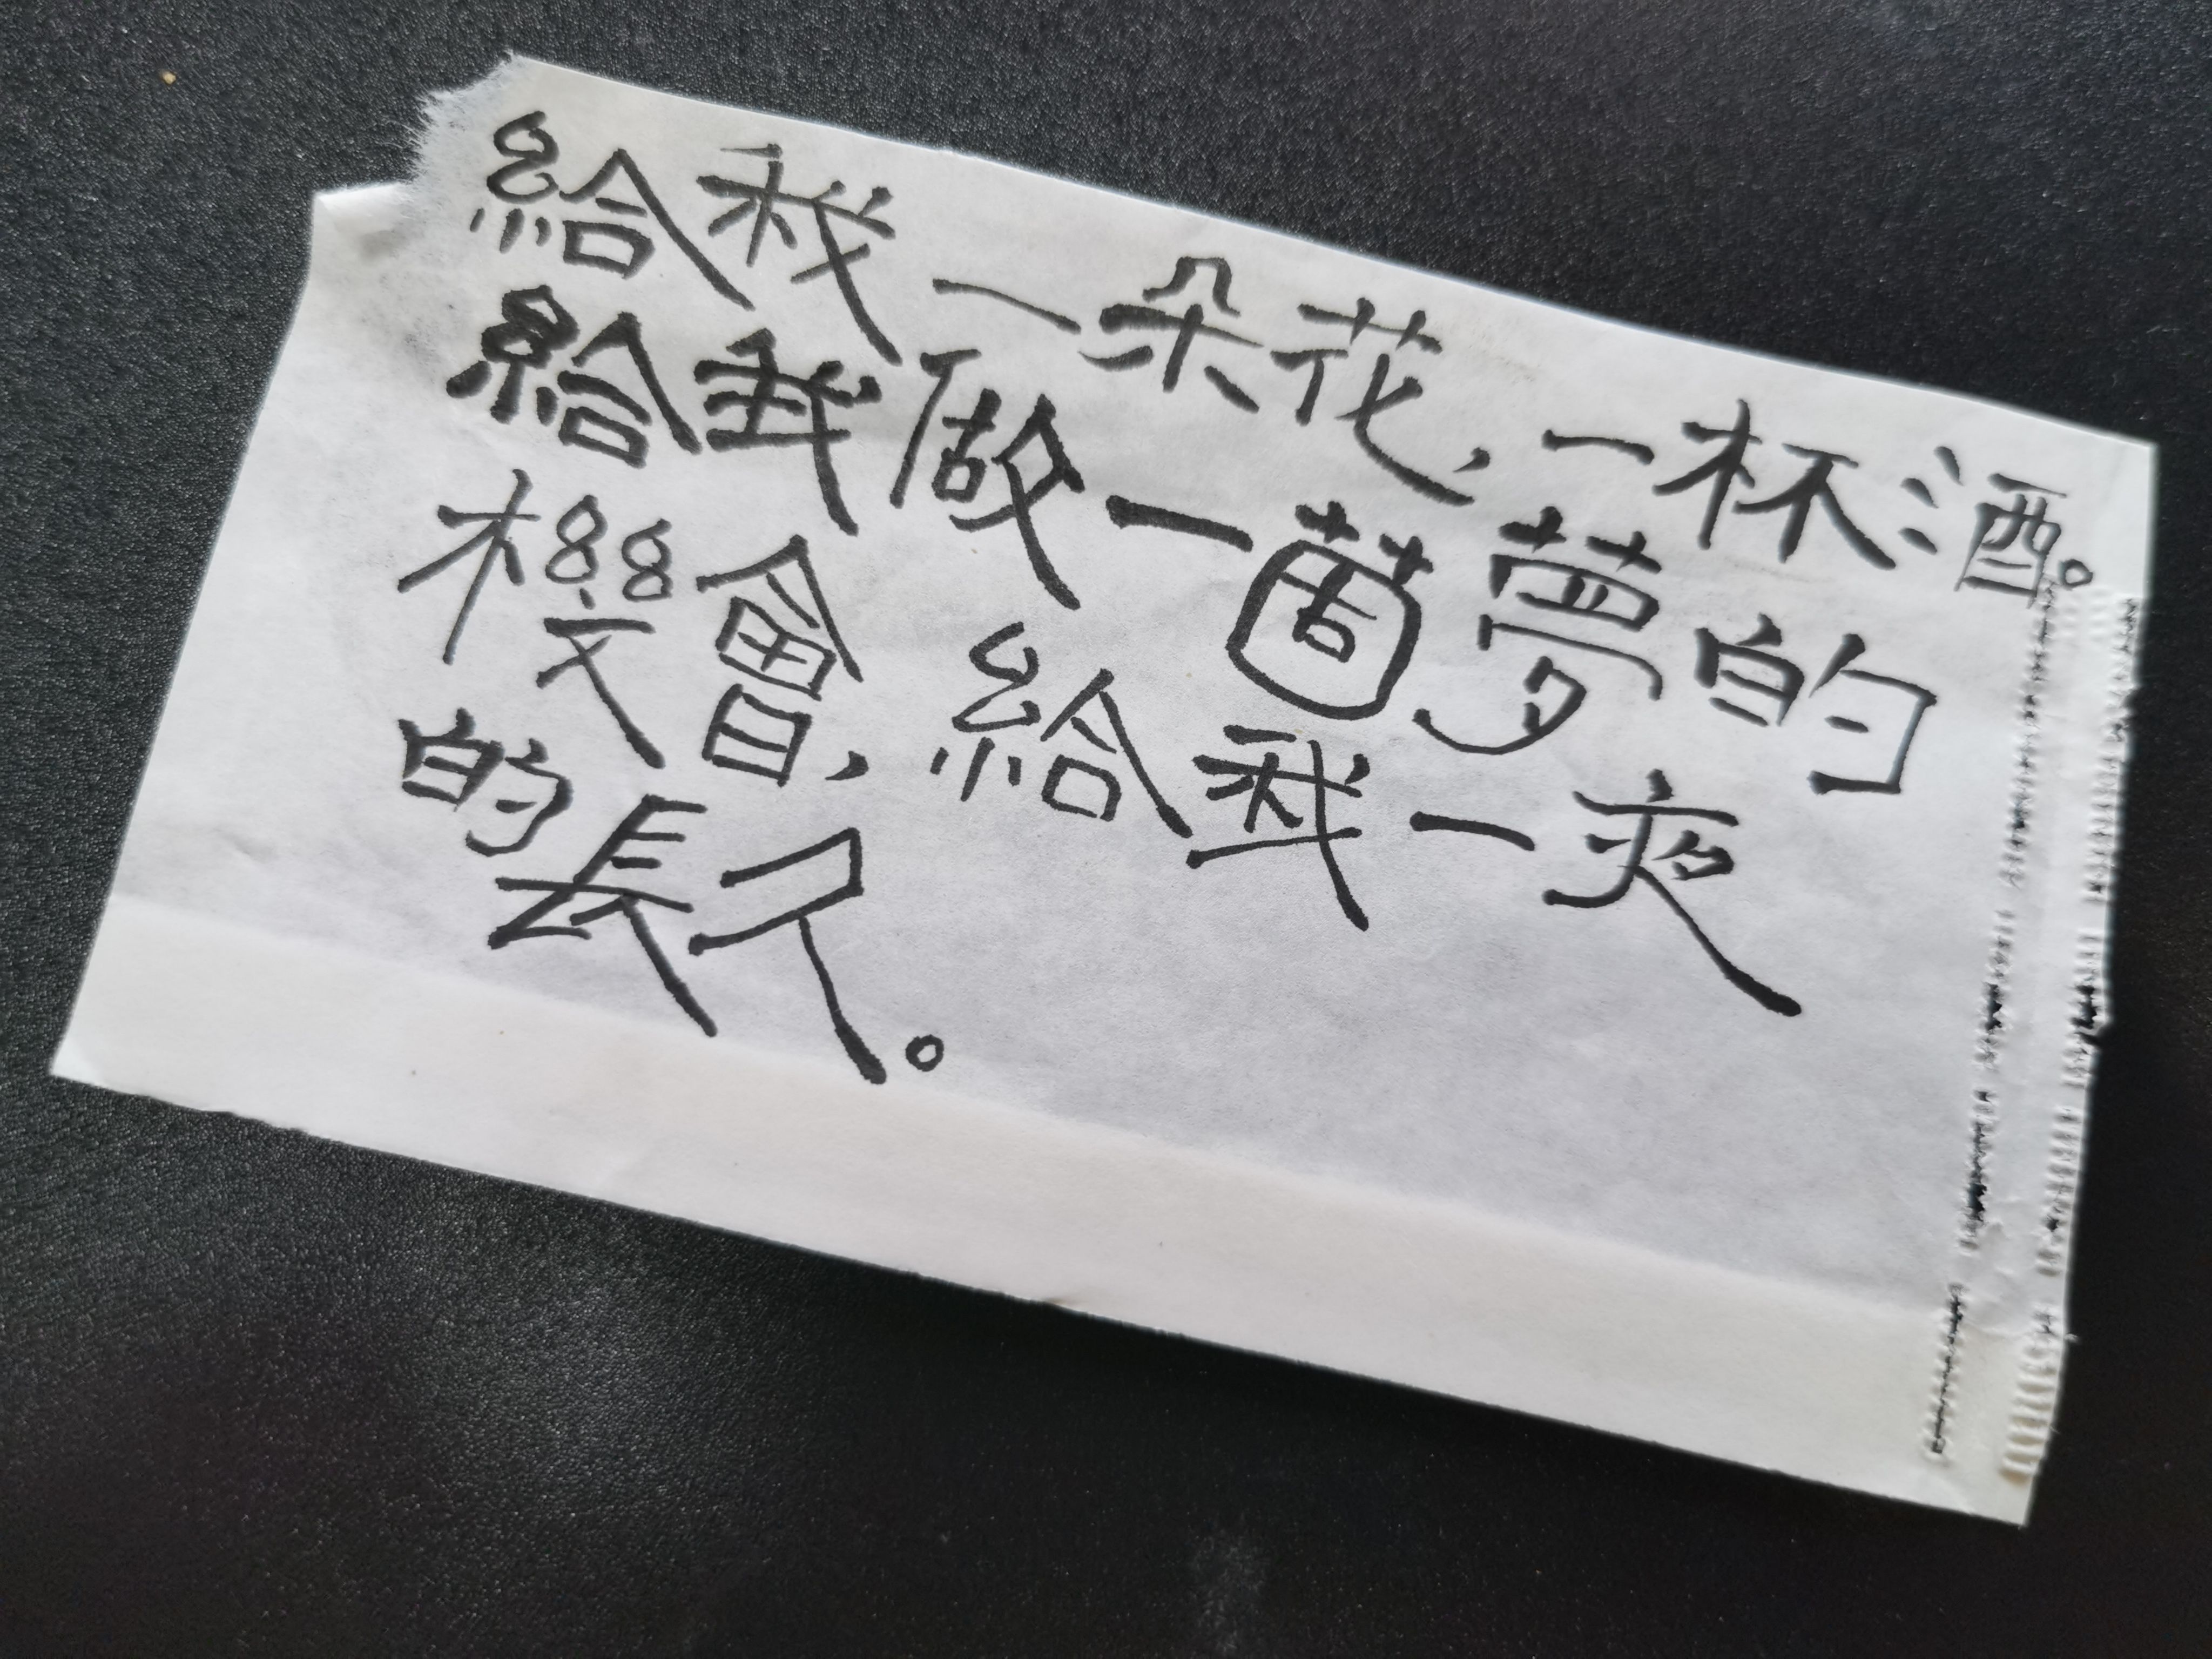 給我一朵花，一杯酒。
給我做一箇夢的
機會，給我一夜
的長久。